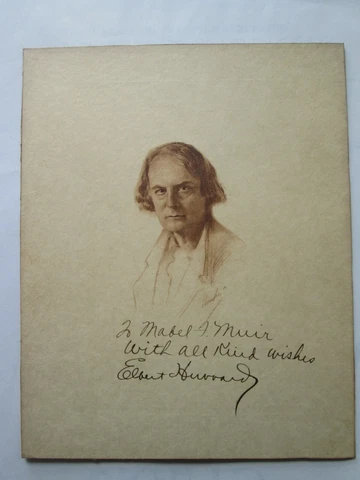 To Mabel F Muir
With all Kind wishes
Elbert Hubbard